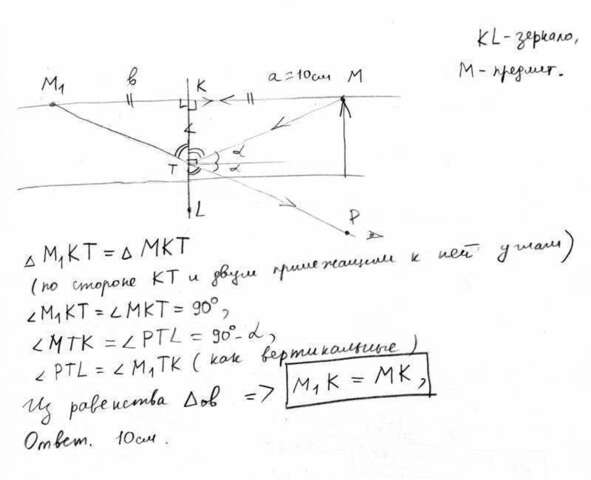 KL - зеркало,
M - предмет.
M₁
в
K
a = 10см
M
α
α
T
L
P
△ M₁KT = △ MKT
(по стороне KT и двум прилежащим к ней углам)
∠M₁KT = ∠MKT = 90°,
∠MTK = ∠PTL = 90° - α,
∠PTL = ∠M₁TK (как вертикальные)
Из равенства △ов => M₁K = MK,
Ответ. 10см.